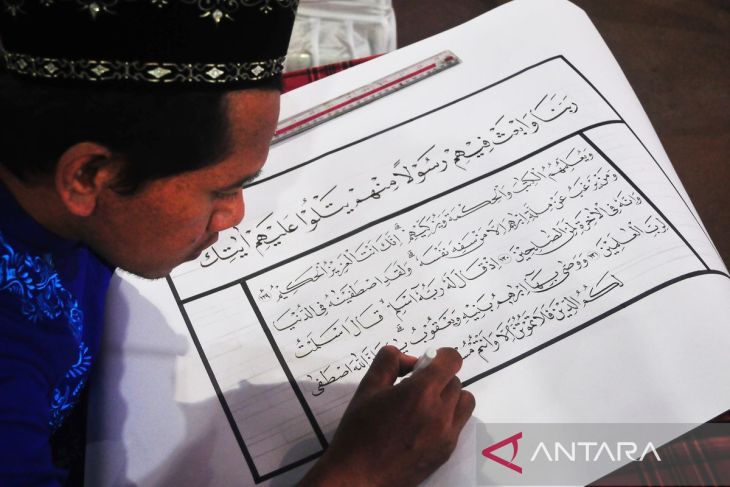 رَبَّنَا وَابْعَثْ فِيْهِمْ رَسُوْلًا مِنْهُمْ يَتْلُوْا عَلَيْهِمْ اٰيٰتِكَ
وَيُعَلِّمُهُمُ الْكِتٰبَ وَالْحِكْمَةَ وَيُزَكِّيْهِمْ ۗ اِنَّكَ اَنْتَ الْعَزِيْزُ الْحَكِيْمُ ١٢٩
وَمَنْ يَرْغَبُ عَنْ مِلَّةِ اِبْرٰهٖمَ اِلَّا مَنْ سَفِهَ نَفْسَهٗ ۗ وَلَقَدِ اصْطَفَيْنٰهُ فِى الدُّنْيَا
وَاِنَّهٗ فِى الْاٰخِرَةِ لَمِنَ الصّٰلِحِيْنَ ١٣٠ اِذْ قَالَ لَهٗ رَبُّهٗ اَسْلِمْ ۙ قَالَ اَسْلَمْتُ
لِرَبِّ الْعٰلَمِيْنَ ١٣١ وَوَصّٰى بِهَآ اِبْرٰهٖمُ بَنِيْهِ وَيَعْقُوْبُ ۗ اللّٰهَ اصْطَفٰى
لَكُمُ الدِّيْنَ فَلَا تَمُوْتُنَّ اِلَّا وَاَنْتُمْ
ANTARA